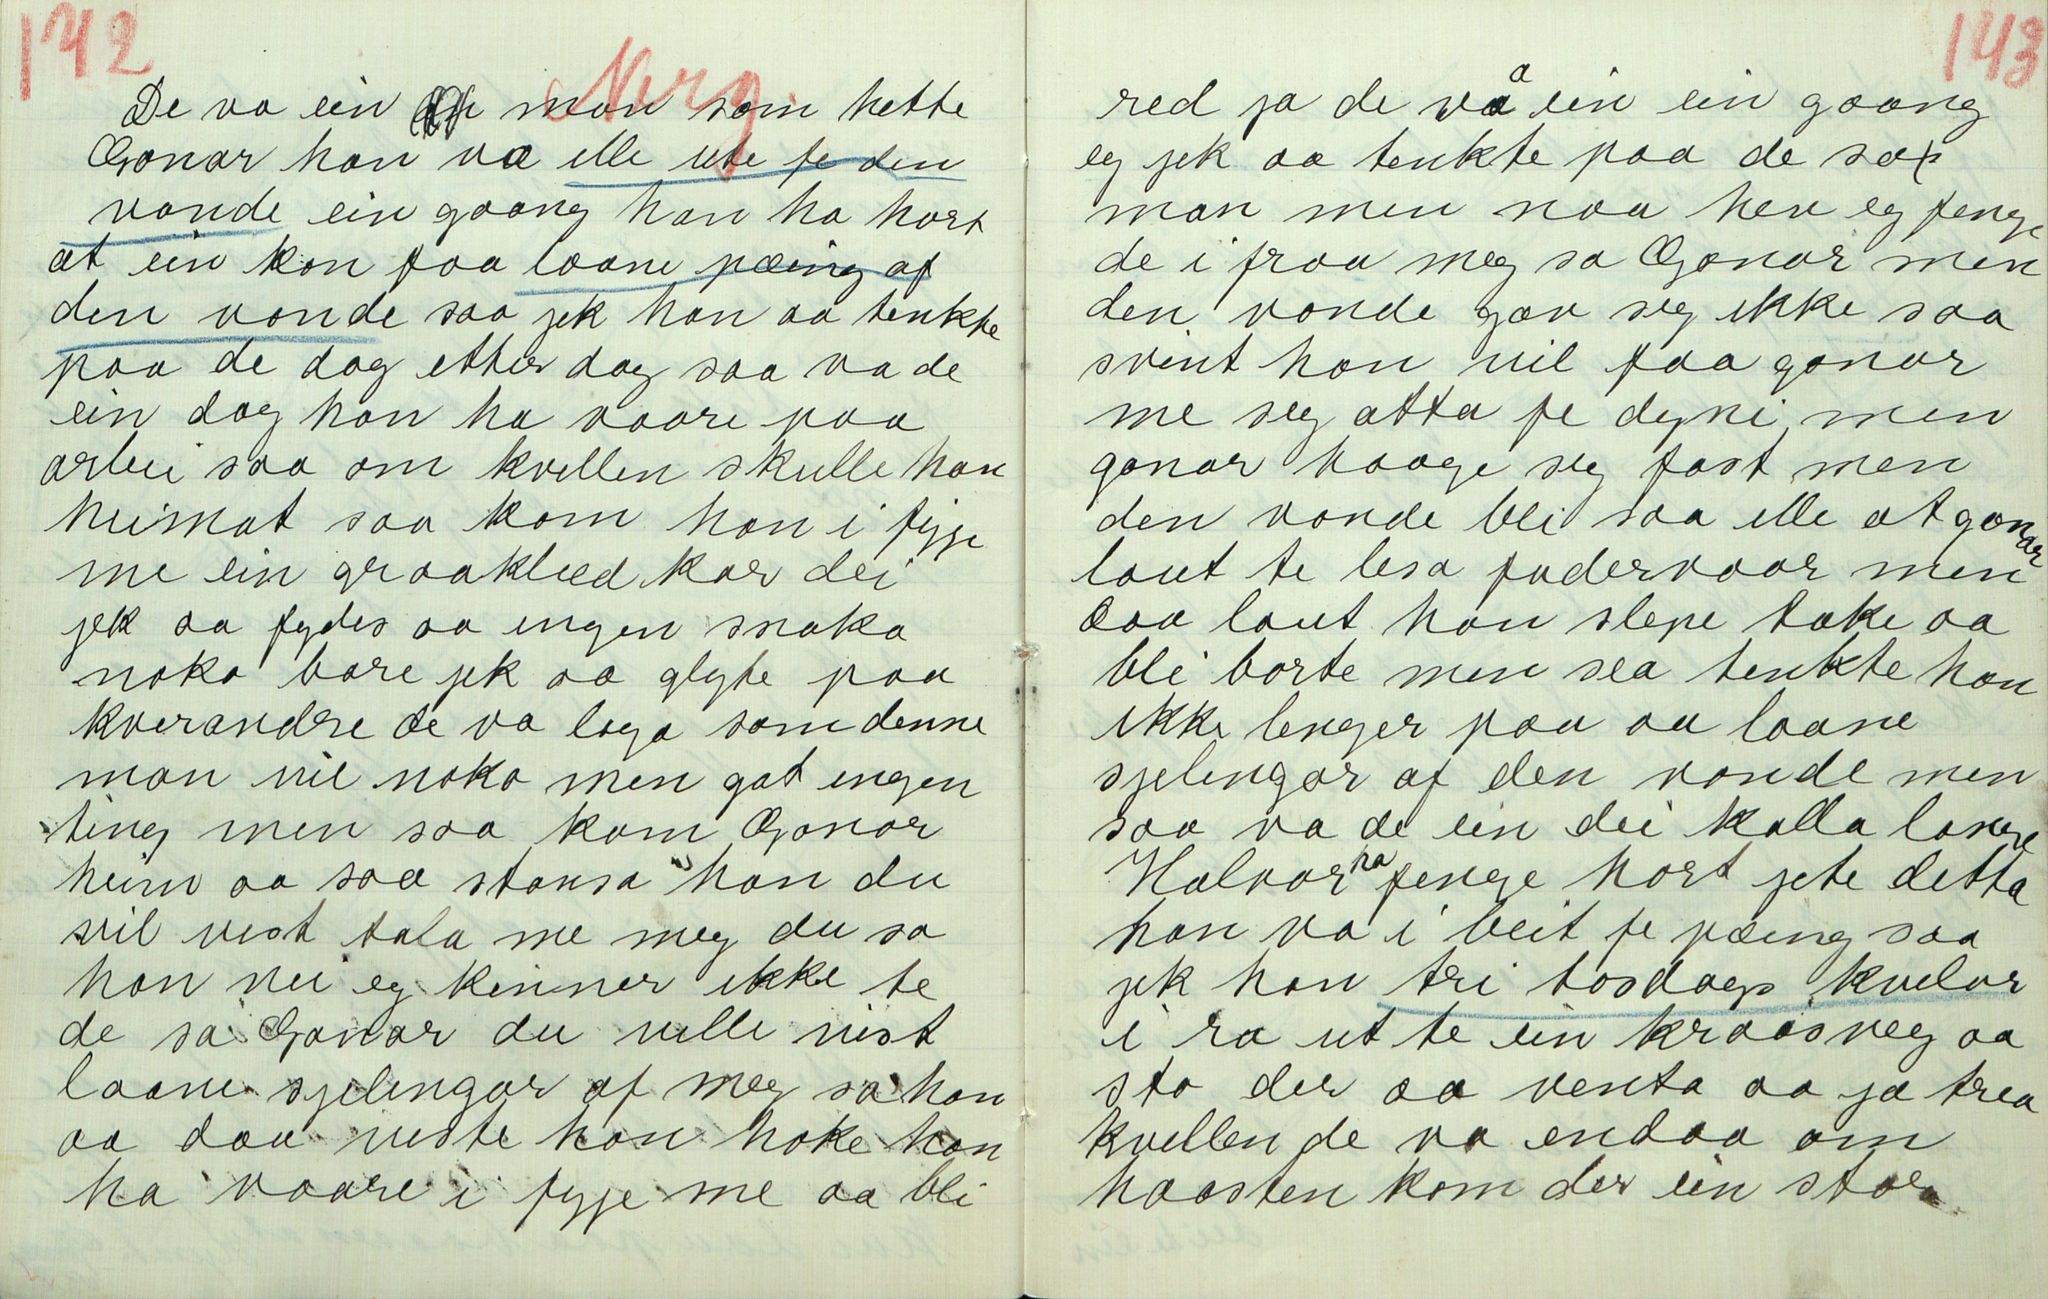 142
Norg.
De va ein man som hette
Gonar han va ille ute fe den
vonde ein goang han ha hørt
at ein kon faa loane pæing af
den vonde saa jek han aa tenkte
paa de dag etter dag saa va de
ein dag han ha voare paa
arbei saa om kvellen skulle han
heimat saa kom han i fyjje
me ein graaklæd kar dei
jek aa fydes aa ingen snaka
noko bare jek aa glyte paa
kverandre de va laga som denne
man vil noko men gat ingen
ting men saa kom Gonar
heim aa saa stansa han du
vil vist tala me meg du sa
han nei eg kinner ikke te
de sa Gonar du ville vist
loane sjelingar af meg sa han
aa daa viste han hoke han
ha voare i fyjje me aa bli
143
red ja de va a ein ein goang
eg jek aa tenkte paa de sa
man men naa hev eg fenge
de i fraa meg sa Gonar men
den vonde gav seg ikke saa
svint han vil faa gonar
me seg atta fe dyni men
gonar haage seg fast men
den vonde bli saa ille at gonar
laut te lesa fadervaar men
daa laut han slepe take aa
bli borte men sea tenkte han
ikke lenger paa aa loane
sjelingar af den vonde men
saa va de ein dei kalla lange
Halvor ha fenge hørt jete detta
han va i beit fe pæing saa
jek han tri tosdags kvelar
i ra ut te ein kraasveg aa
sto der aa venta aa ja trea
kvellen de va endaa om
haasten kom der ein stor